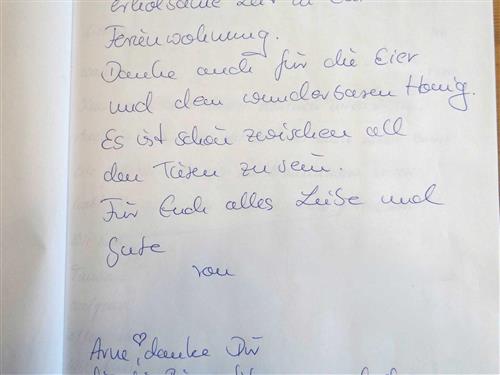 erholsame Zeit in Eur
Ferienwohnung.
Danke auch für die Eier
und den wunderbaren Honig.
Es ist schön zwischen all
den Tieren zu sein.
Für Euch alles Liebe und
Gute
von
Arne, danke Dir